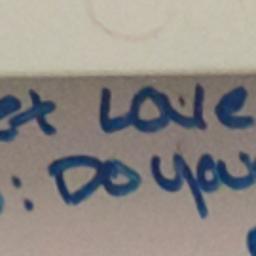 ex Love
: Do you